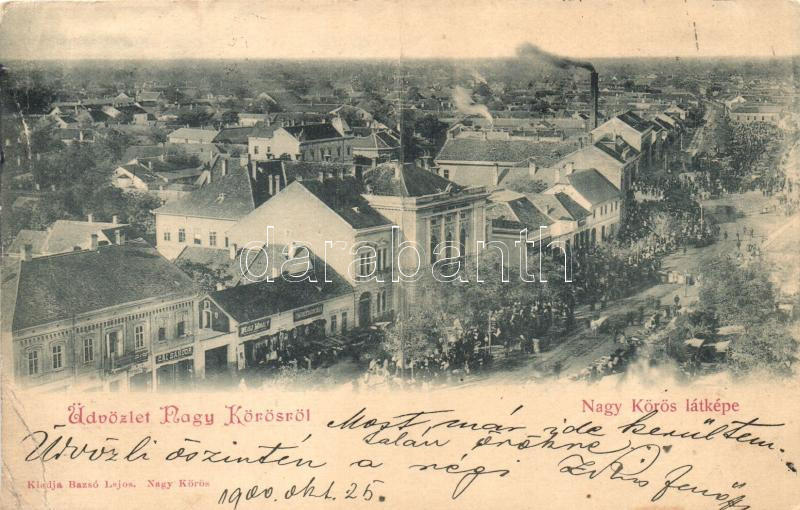 Üdvözlet Nagy Körösről
Nagy Körös látképe
Most már ide kerültem
talán örökre
Üdvözli őszintén a régi
Jenő
1900. okt. 25.
Kiadja Bazsó Lajos. Nagy Körös
darabanth.com